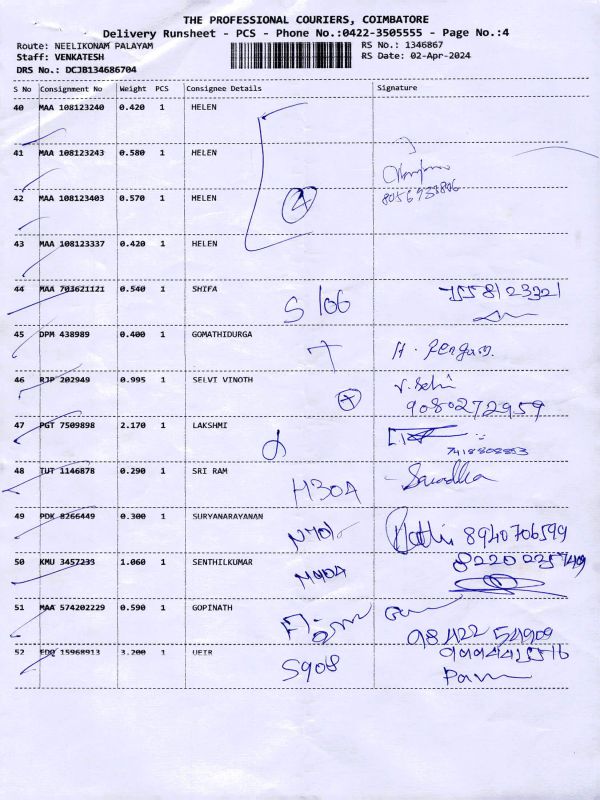 THE PROFESSIONAL COURIERS, COIMBATORE
Delivery Runsheet - PCS - Phone No.:0422-3505555 - Page No.:4
Route: NEELIKONAM PALAYAM RS No.: 1346867
Staff: VENKATESH RS Date: 02-Apr-2024
DRS No.: DCJB134686704
S No Consignment No Weight PCS Consignee Details Signature
40 MAA 108123240 0.420 1 HELEN
41 MAA 108123243 0.580 1 HELEN
8056933806
42 MAA 108123403 0.570 1 HELEN
43 MAA 108123337 0.420 1 HELEN
44 MAA 703621121 0.540 1 SHIFA
S 106 7558123321
45 DPM 438989 0.400 1 GOMATHIDURGA
46 RJP 202949 0.995 1 SELVI VINOTH
9080272959
47 PGT 7509898 2.170 1 LAKSHMI
48 TUT 1146878 0.290 1 SRI RAM
H30A
49 PDK 8266449 0.300 1 SURYANARAYANAN
8940706599
50 KMU 3457233 1.060 1 SENTHILKUMAR
N40A
51 MAA 574202229 0.590 1 GOPINATH
98422 54909
52 15968913 3.200 1
S908